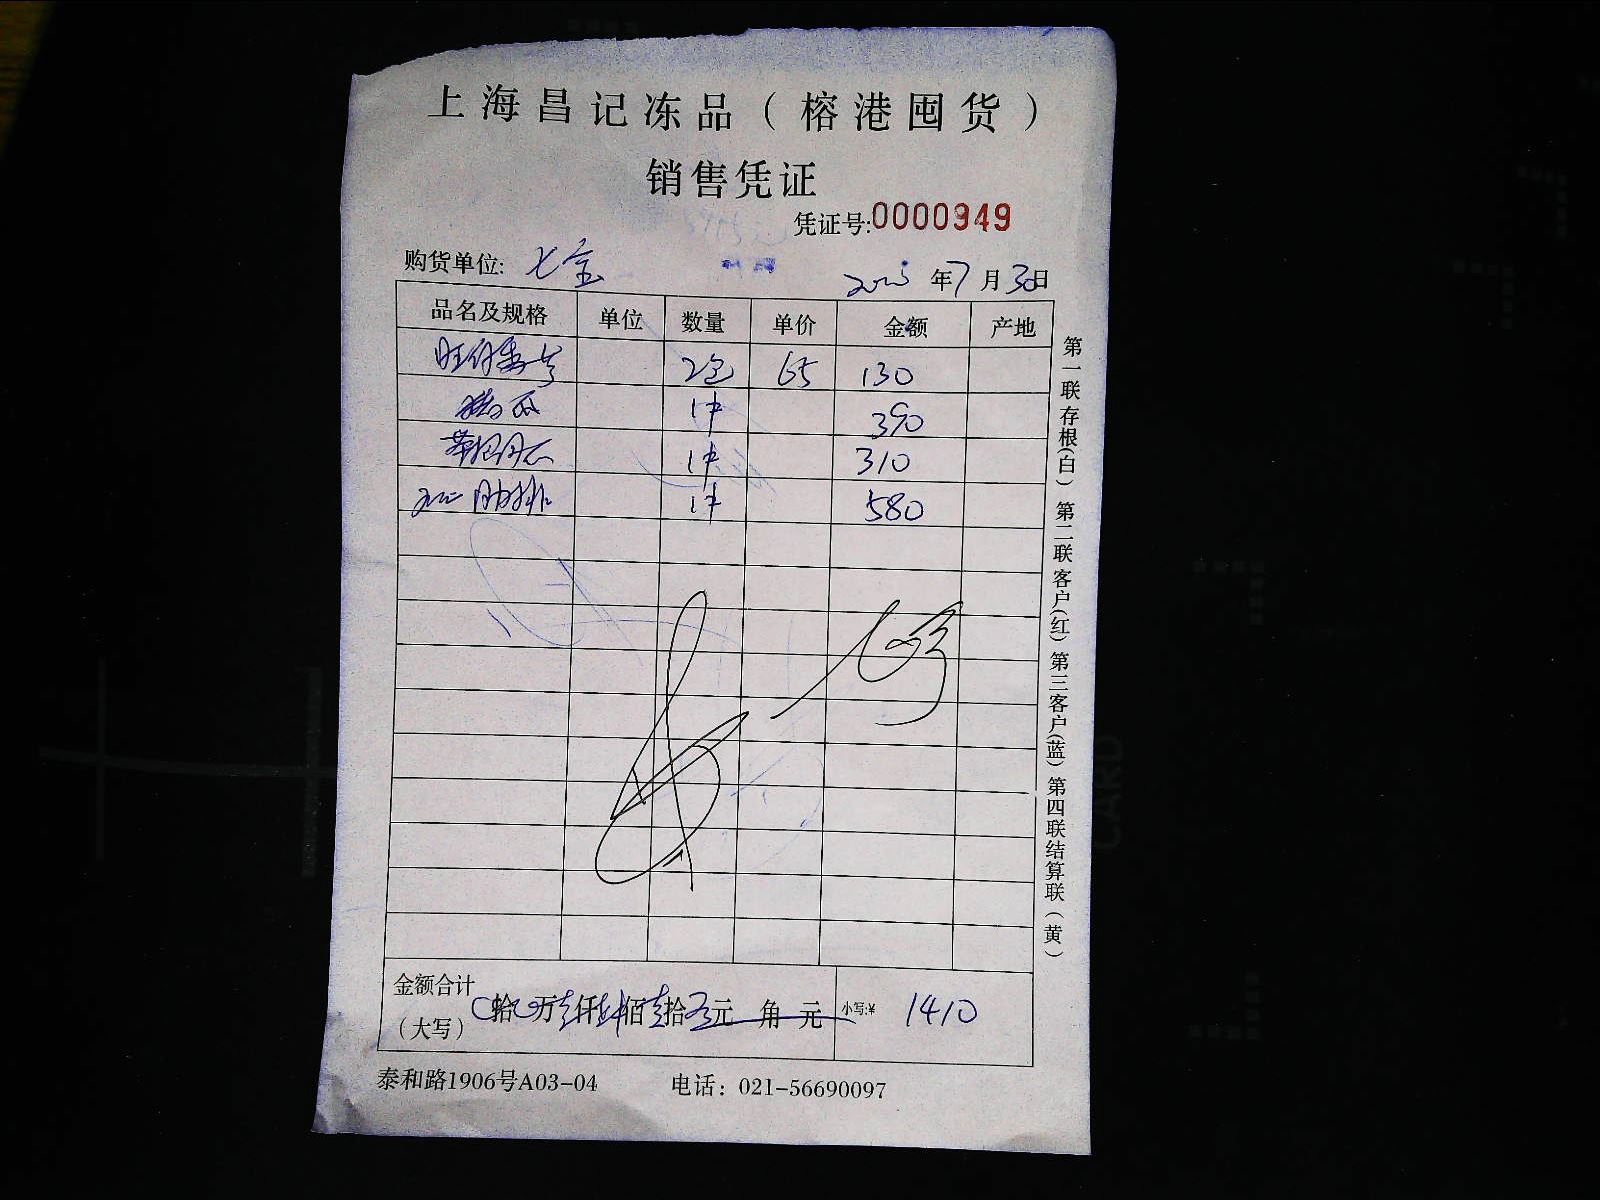 上海昌记冻品（榕港囤货）
销售凭证
凭证号:0000949
购货单位: 七宝
年7月30日
品名及规格 单位 数量 单价 金额 产地
2包 65 130
1件 390
1件 310
肋排 1件 580
金额合计
（大写） 拾 万壹仟肆佰壹拾 元 角 元 小写:¥ 1410
泰和路1906号A03-04 电话：021-56690097
第一联存根(白) 第二联客户(红) 第三客户(蓝) 第四联结算联(黄)